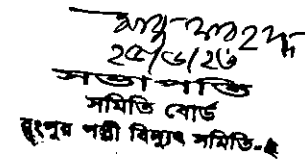 ২৫/৬/২৩
সভাপতি
সমিতি বোর্ড
রংপুর পল্লী বিদ্যুৎ সমিতি-২